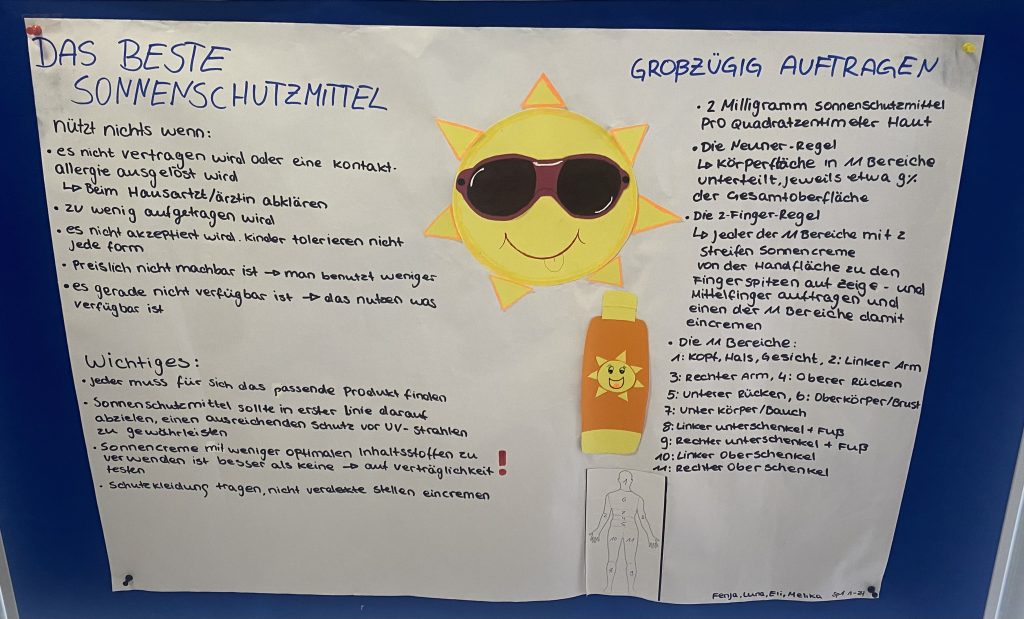 DAS BESTE
SONNENSCHUTZMITTEL
nützt nichts wenn:
• es nicht vertragen wird oder eine Kontakt-
allergie ausgelöst wird
↳ Beim Hausartzt/ärztin abklären
• zu wenig aufgetragen wird
• es nicht akzeptiert wird. Kinder tolerieren nicht
jede form
• Preislich nicht machbar ist → man benutzt weniger
• es gerade nicht verfügbar ist → das nutzen was
verfügbar ist
Wichtiges:
• Jeder muss für sich das passende Produkt finden
• Sonnenschutzmittel sollte in erster Linie darauf
abzielen, einen ausreichenden Schutz vor UV-Strahlen
zu gewährleisten
• Sonnencreme mit weniger optimalen Inhaltsstoffen zu
verwenden ist besser als keine → auf verträglichkeit !
testen
• Schutzkleidung tragen, nicht verdeckte stellen eincremen
GROßZÜGIG AUFTRAGEN
• 2 Milligramm Sonnenschutzmittel
Pro Quadratzentimeter Haut
• Die Neuner-Regel
↳ Körperfläche in 11 Bereiche
unterteilt, jeweils etwa 9%
der Gesamtoberfläche
• Die 2-Finger-Regel
↳ Jeder der 11 Bereiche mit 2
Streifen Sonnencreme
von der Handfläche zu den
Fingerspitzen auf Zeige- und
Mittelfinger auftragen und
einen der 11 Bereiche damit
eincremen
• Die 11 Bereiche:
1: Kopf, Hals, Gesicht, 2: Linker Arm
3: Rechter Arm, 4: Oberer Rücken
5: Unterer Rücken, 6: Oberkörper/Brust
7: Unterkörper/Bauch
8: Linker unterschenkel + Fuß
9: Rechter unterschenkel + Fuß
10: Linker Oberschenkel
11: Rechter Oberschenkel
1
6
10 11
Fenja, Luna, Eli, Melika